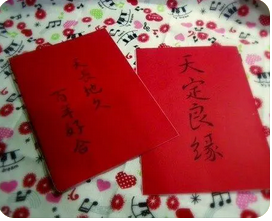 天長地久
百年好合
天定良緣